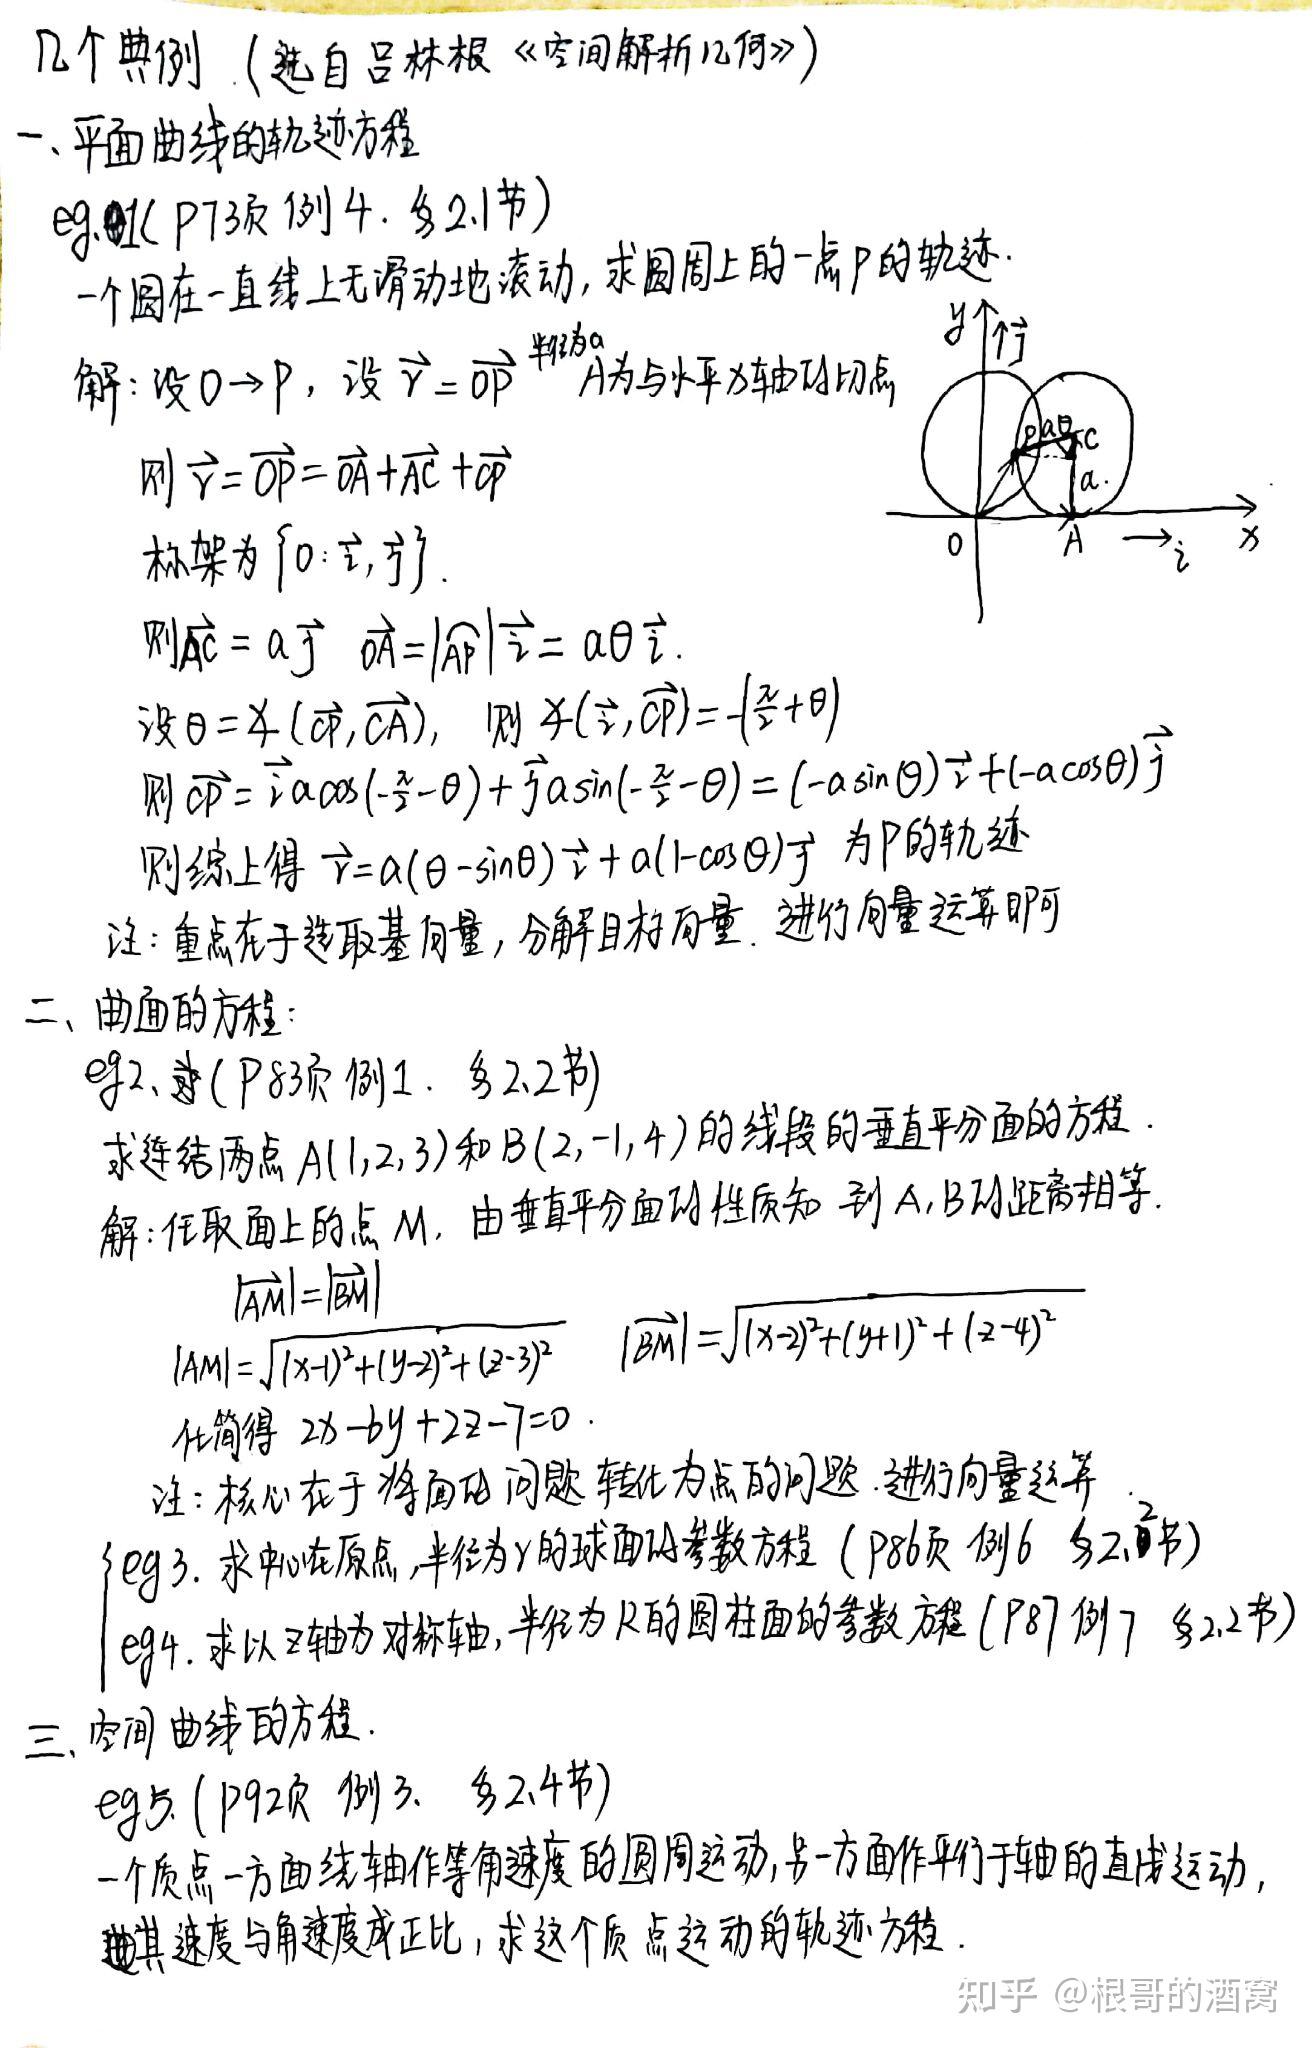 几个典例.(选自吕林根《空间解析几何》)
一、平面曲线的轨迹方程
eg.1(P73页 例4. §2.1节)
一个圆在一直线上无滑动地滚动,求圆周上的一点P的轨迹.
解:设O→P, 设 r⃗=OP⃗ 半径为a A为与水平x轴的切点
y j⃗ P aθ C a. O A i⃗ x
则 r⃗=OP⃗=OA⃗+AC⃗+CP⃗
标架为{O:i⃗,j⃗}.
则AC⃗=aj⃗ OA⃗=|AP⌒|i⃗=aθi⃗.
设θ=∡(CP⃗,CA⃗), 则 ∡(i⃗,CP⃗)=-(π/2+θ)
则 CP⃗=i⃗acos(-π/2-θ)+j⃗asin(-π/2-θ)=(-asinθ)i⃗+(-acosθ)j⃗
则综上得 r⃗=a(θ-sinθ)i⃗+a(1-cosθ)j⃗ 为P的轨迹
注:重点在于选取基向量,分解目标向量.进行向量运算即可
二、曲面的方程:
eg2、(P83页 例1. §2.2节)
求连结两点A(1,2,3)和B(2,-1,4)的线段的垂直平分面的方程.
解:任取面上的点M, 由垂直平分面的性质知 到A,B的距离相等.
|AM⃗|=|BM⃗|
|AM|=√((x-1)²+(y-2)²+(z-3)²) |BM⃗|=√((x-2)²+(y+1)²+(z-4)²)
化简得 2x-6y+2z-7=0.
注:核心在于将面的问题转化为点的问题.进行向量运算.
eg3. 求中心在原点,半径为r的球面的参数方程(P86页 例6 §2.2节)
eg4. 求以z轴为对称轴,半径为R的圆柱面的参数方程(P87 例7 §2.2节)
三、空间曲线的方程.
eg5.(P92页 例3、 §2.4节)
一个质点一方面绕轴作等角速度的圆周运动,另一方面作平行于轴的直线运动,
其速度与角速度成正比,求这个质点运动的轨迹方程.
知乎 @根哥的酒窝